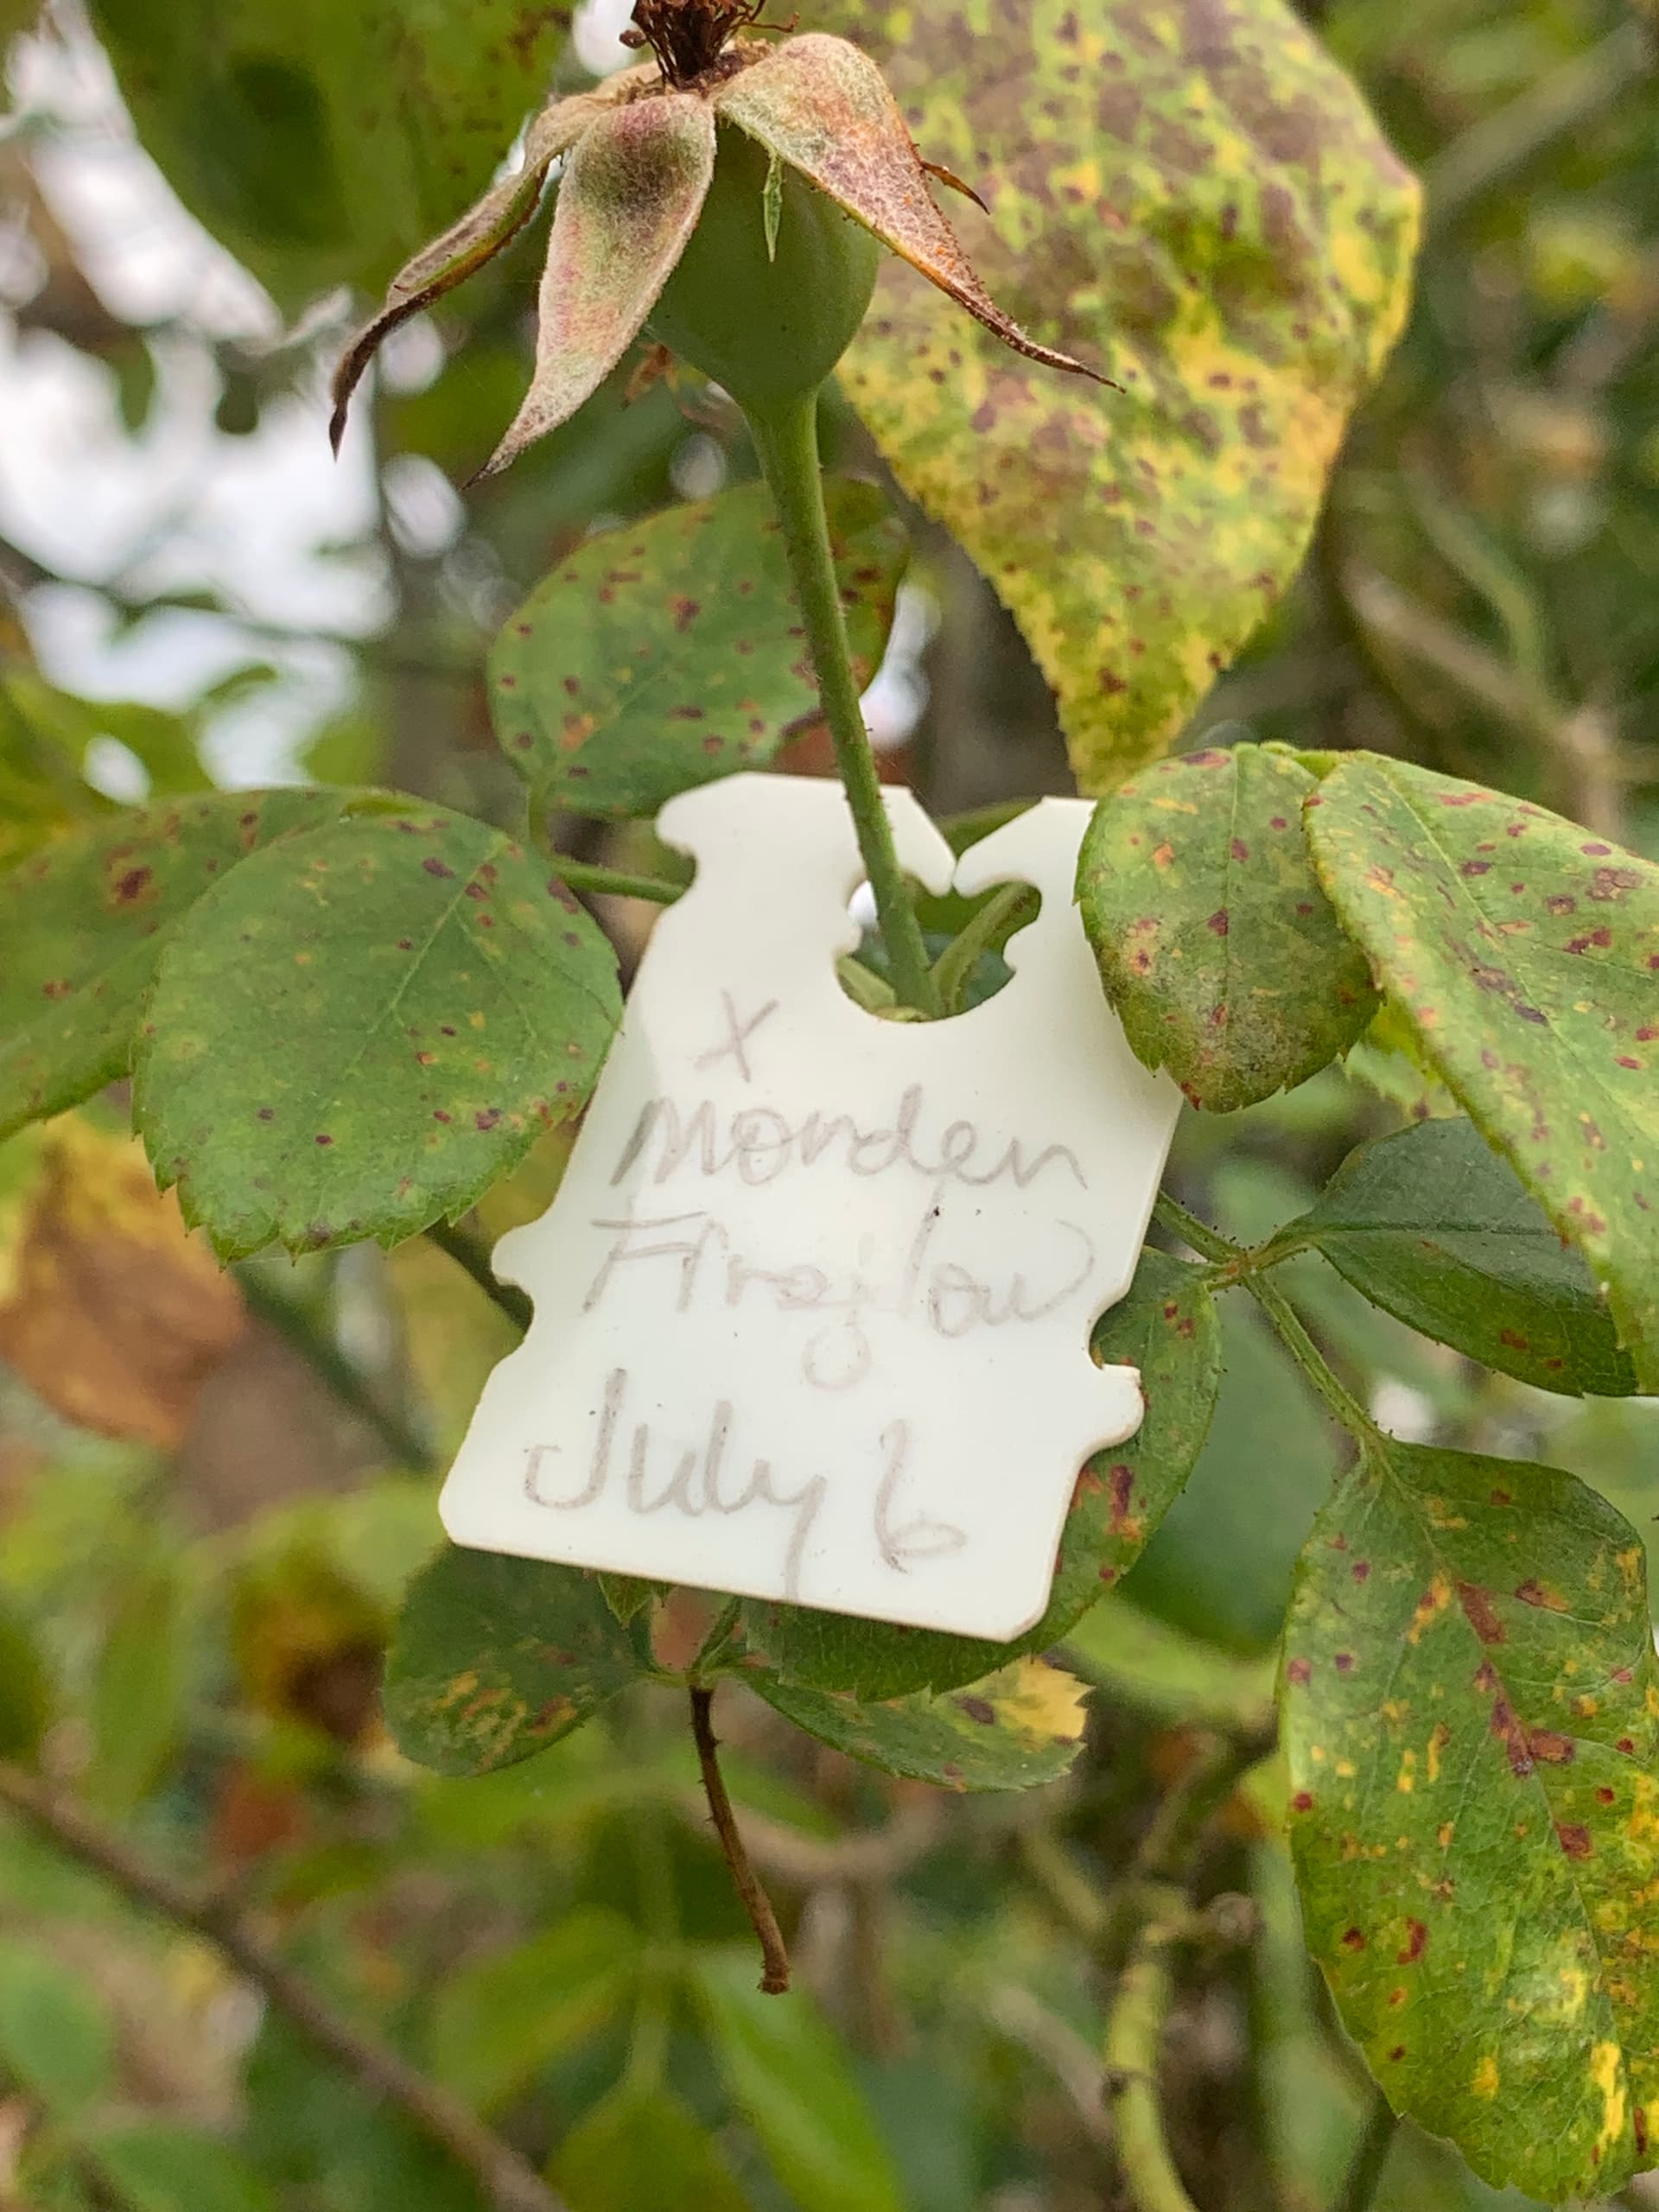 X
Morden
Fireglow
July 6